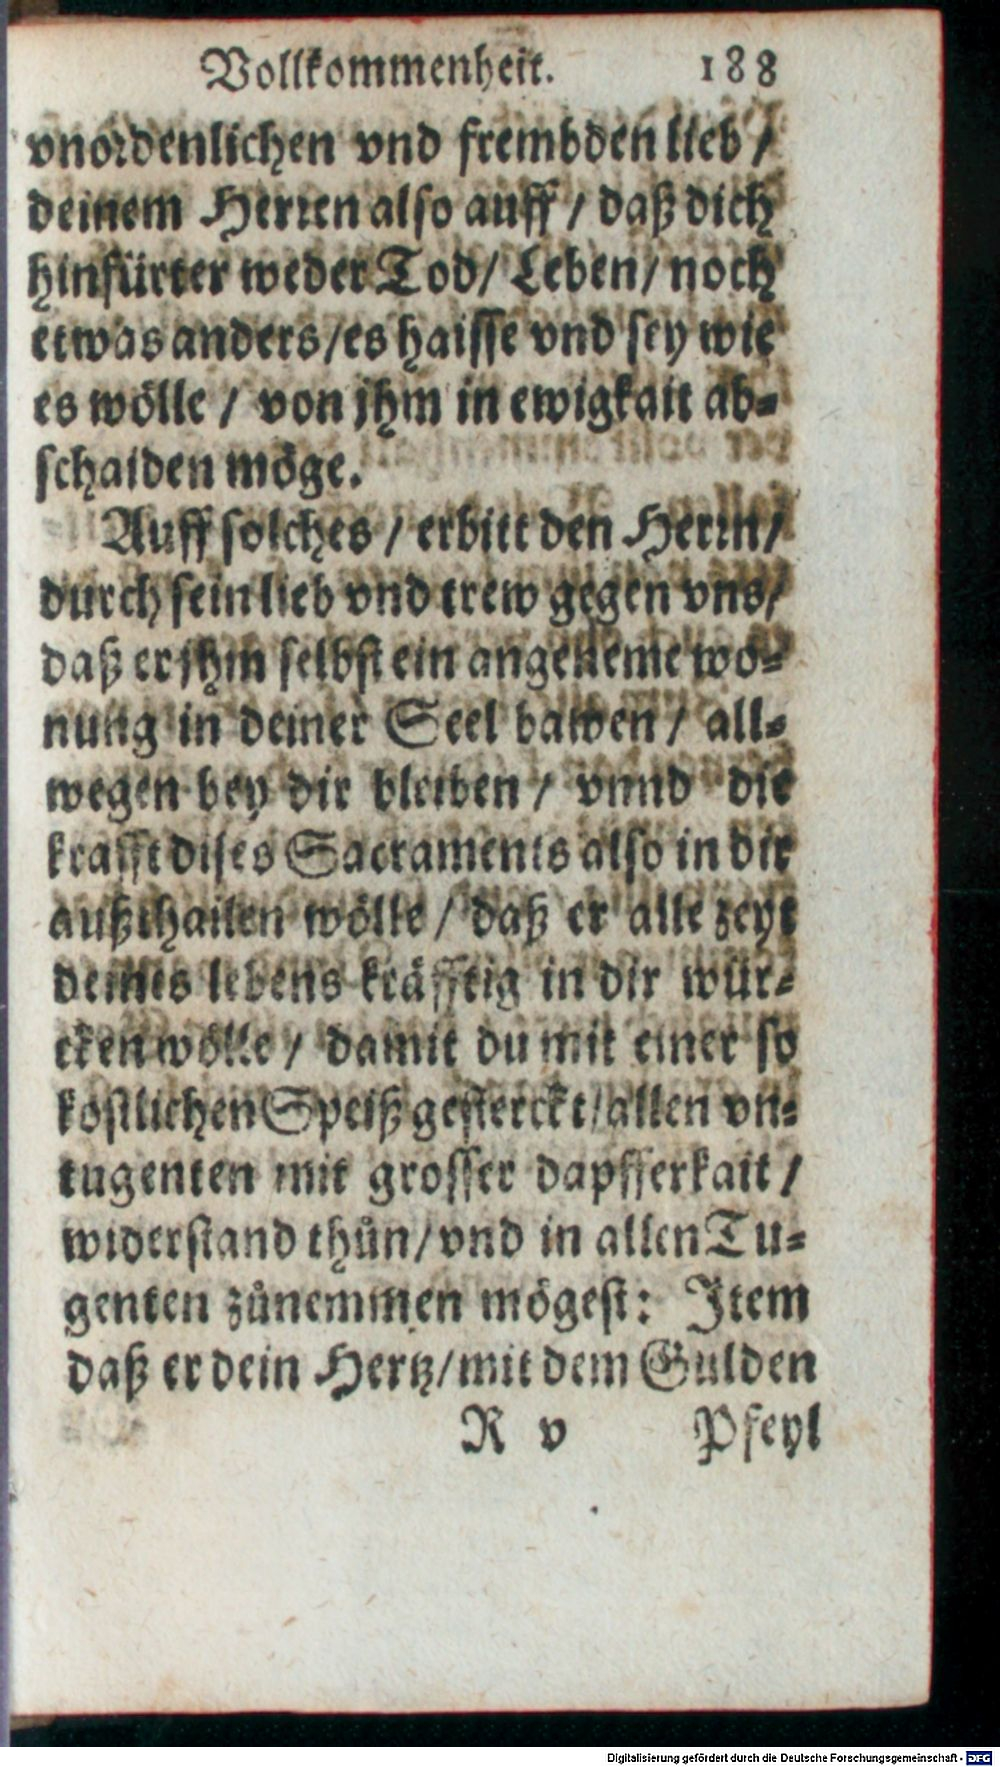 Vollkommenheit. 188
vnordenlichen vnd frembden lieb /
deinem Herren also auff / daß dich
hinfürter weder Tod / Leben / noch
etwas anders / es haisse vnd sey wie
es wölle / von jhm in ewigkait ab-
schaiden möge.
Auff solches / erbitt den Herrn /
durch sein lieb vnd trew gegen vns /
daß er jhm selbst ein angeneme wo-
nung in deiner Seel bawen / all-
wegen bey dir bleiben / vnnd die
krafft dises Sacraments also in dir
außthailen wölle / daß er alle zeyt
deines lebens kräfftig in dir wür-
cken wölle / damit du mit einer so
kostlichen Speiß gesterckt / allen vn-
tugenten mit grosser dapfferkait /
widerstand thůn / vnd in allen Tu-
genten zůnemmen mögest: Jtem
daß er dein Hertz / mit dem Gulden
R v Pfeyl
Digitalisierung gefördert durch die Deutsche Forschungsgemeinschaft - DFG